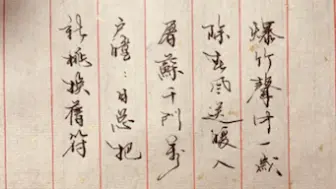 爆竹声中一岁
除春风送暖入
屠苏千门万
户曈:日总把
新桃换旧符